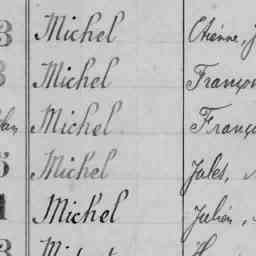 3 Michel Etienne, J
3 Michel Franço
Michel Franço
5 Michel Jules,
1 Michel Julien,
3